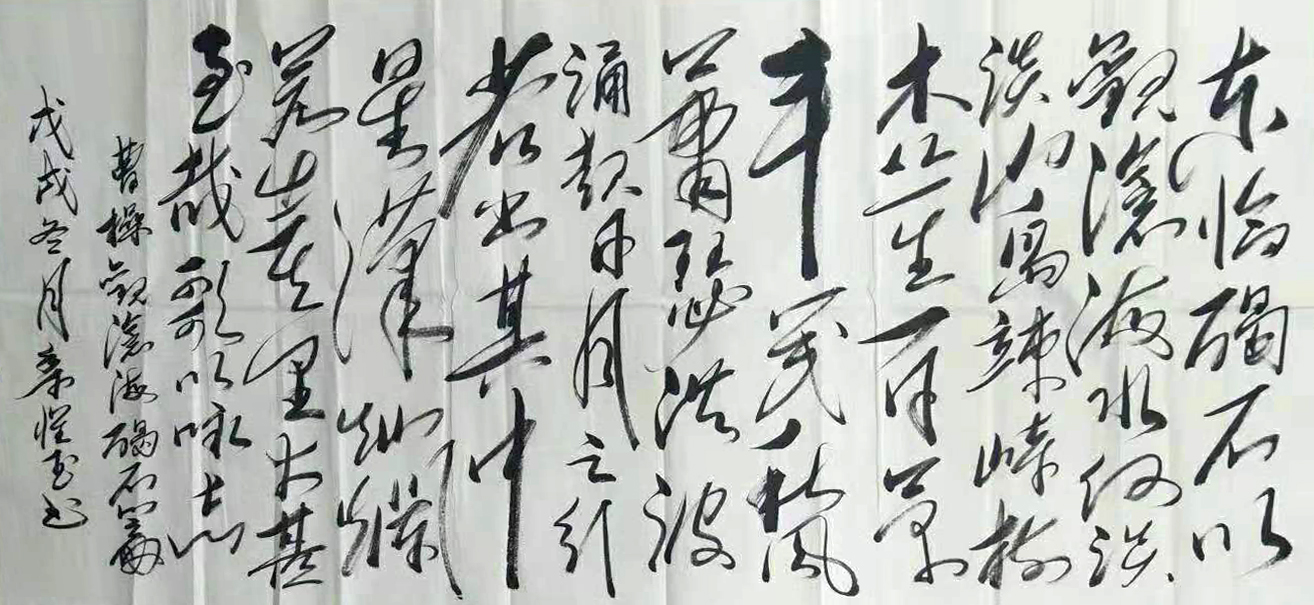 东临碣石以
觀滄海水何淡
淡山島竦峙樹
木丛生百草
丰茂秋風
萧瑟洪波
涌起日月之行
若出其中
星漢灿爛
若出其里幸甚
至哉歌以咏志
曹操觀滄海碣石篇
戊戌冬月书